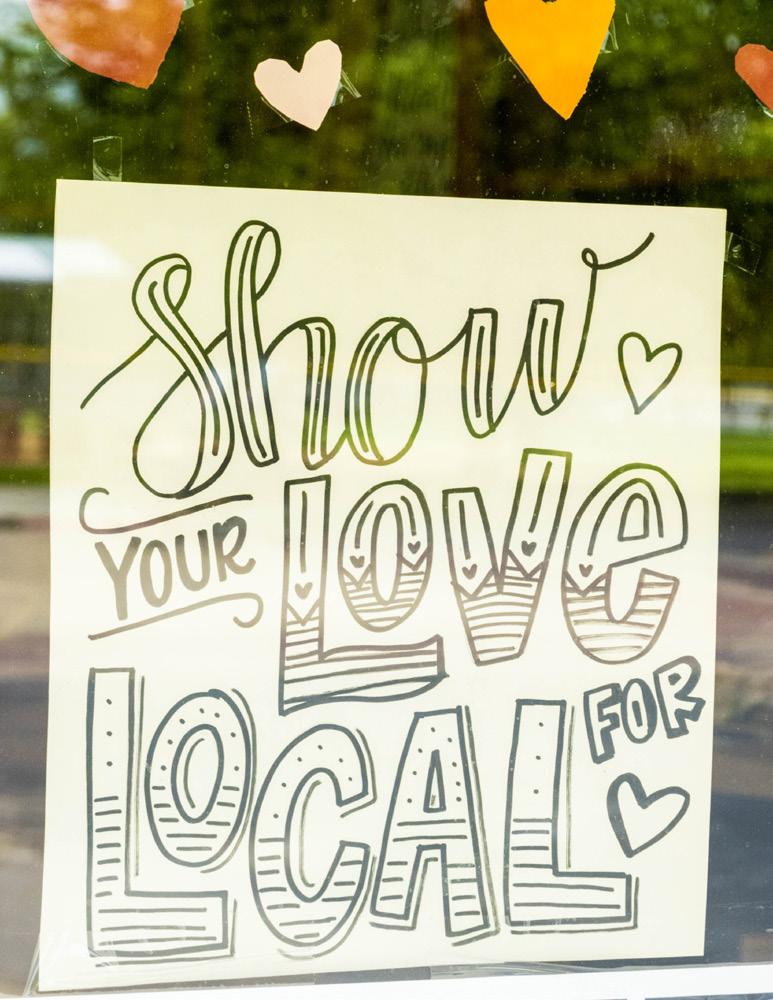 Show
YOUR LOVe
FOR
LOCAL